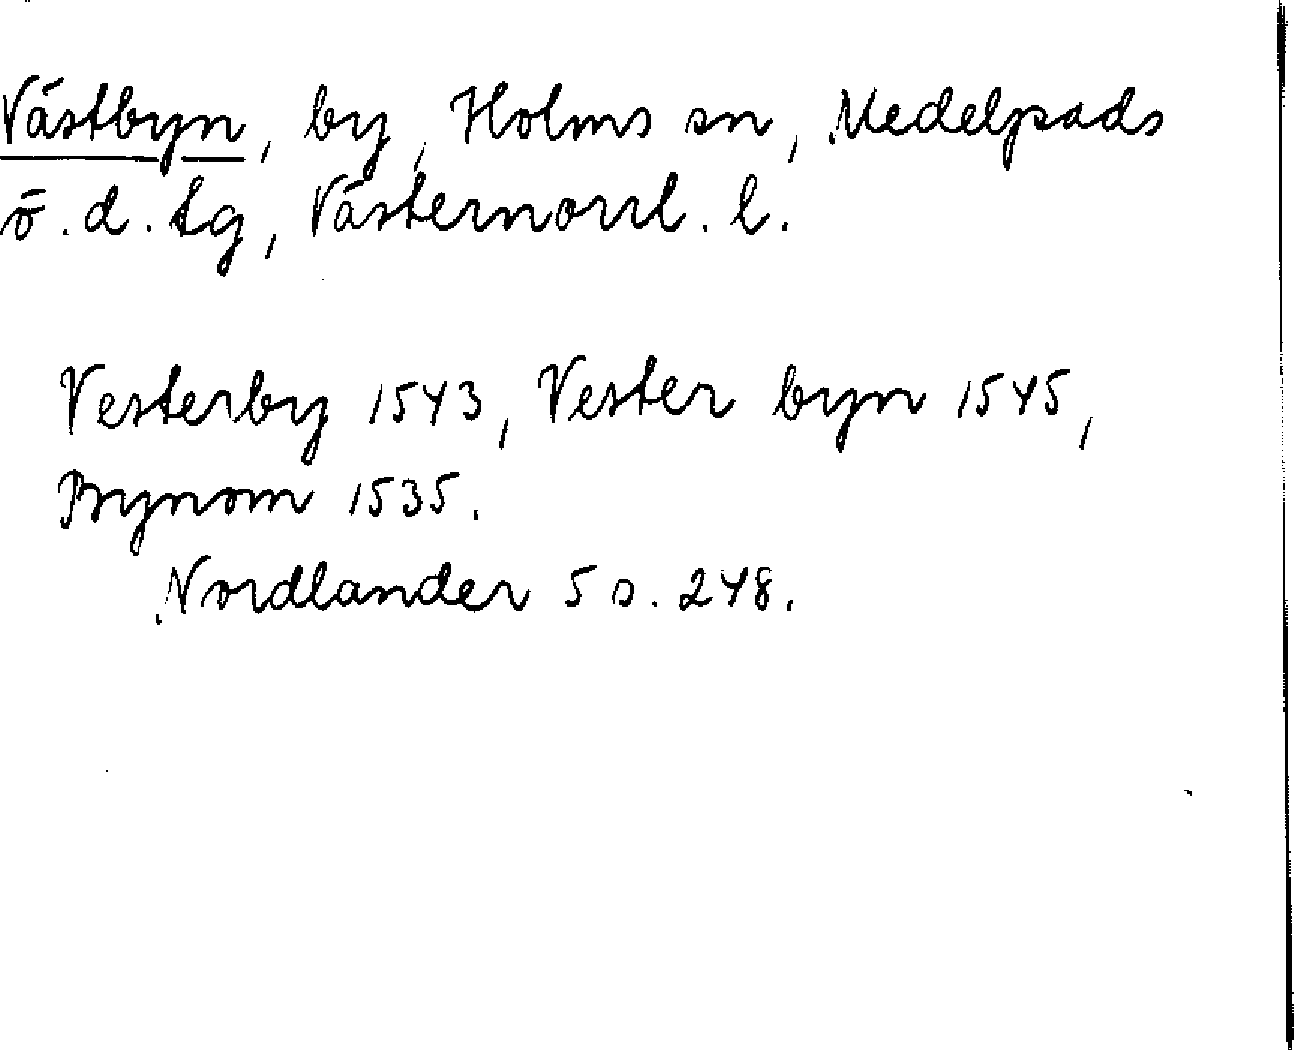 Västbyn, by, Holms sn, Medelpads
ö.d. tg, Västernorrl. l.
Vesterby 1543, Vester byn 1545,
Bynom 1535.
Nordlander 5 s. 248.